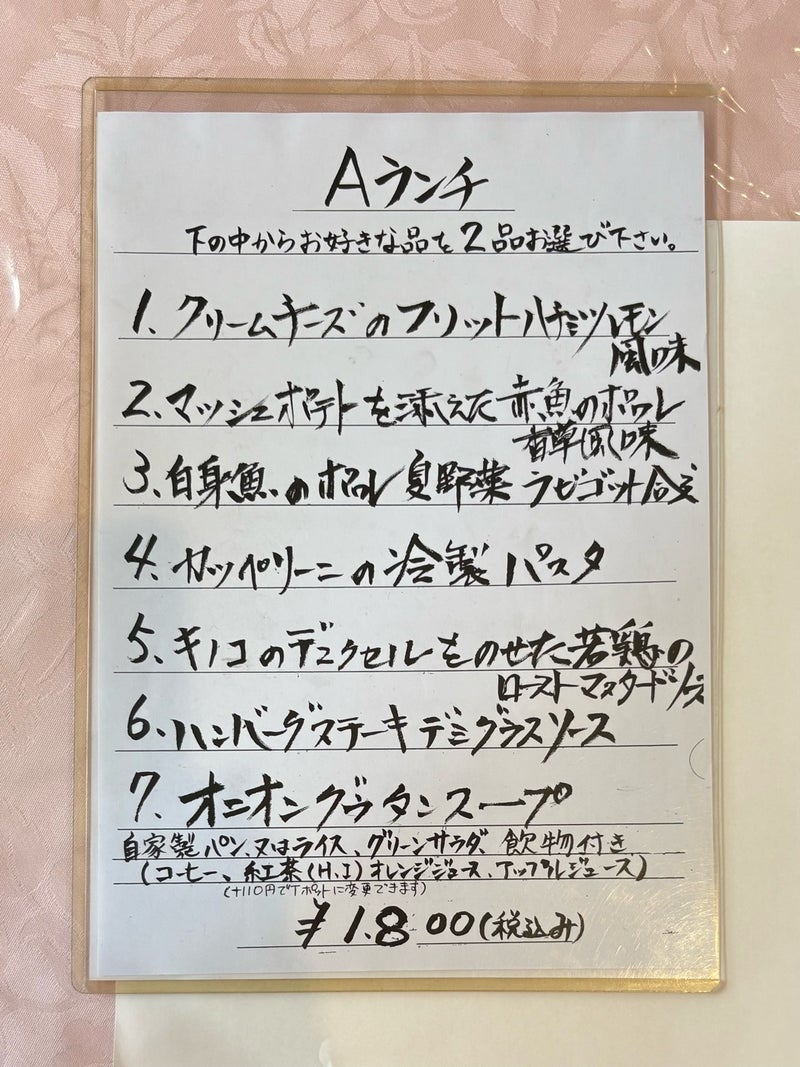 Aランチ
下の中からお好きな品を2品お選び下さい。
1、クリームチーズのフリットハチミツレモン
風味
2、マッシュポテトを添えた赤魚のポワレ
香草風味
3、白身魚のポワレ夏野菜ラビゴット合え
4、カッペリーニの冷製パスタ
5、キノコのデュクセルをのせた若鶏の
ローストマスタードソース
6、ハンバーグステーキデミグラスソース
7、オニオングラタンスープ
自家製パン、又はライス、グリーンサラダ、飲物付き
(コーヒー、紅茶(H、I)オレンジジュース、アップルジュース)
(+110円でTポットに変更できます)
¥1.800(税込み)